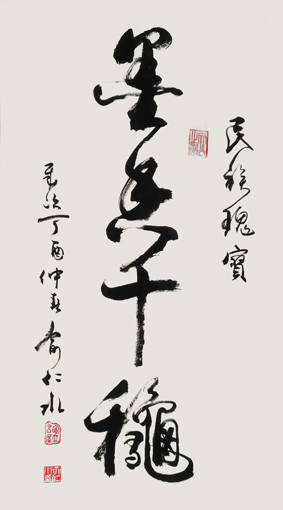 民族瑰寶
墨香千龝
歲次丁酉仲春仁水